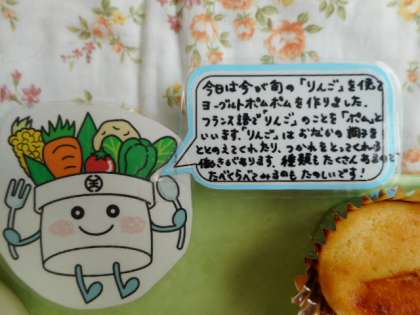 今日は今が旬の「りんご」を使って
ヨーグルトポムポムを作りました。
フランス語で「りんご」のことを「ポム」と
いいます。「りんご」はおなかの調子を
ととのえてくれたり、つかれをとってくれる
働きがあります。種類もたくさんあるので
たべくらべてみるのもたのしいです!